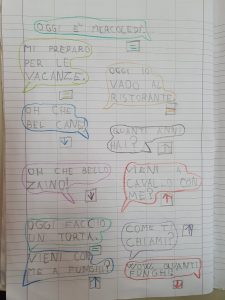 OGGI È MERCOLEDÌ.
MI PREPARO
PER LE
VACANZE.
OGGI IO
VADO AL
RISTORANTE.
OH CHE
BEL CANE!
QUANTI ANNI
HAI?
OH CHE BELLO
ZAINO!
VIENI A
CAVALLO CON
ME?
OGGI FACCIO
UN TORTA.
COME TI
CHIAMI?
VIENI CON
ME A FUNGHI?
QUANTI
FUNGHI